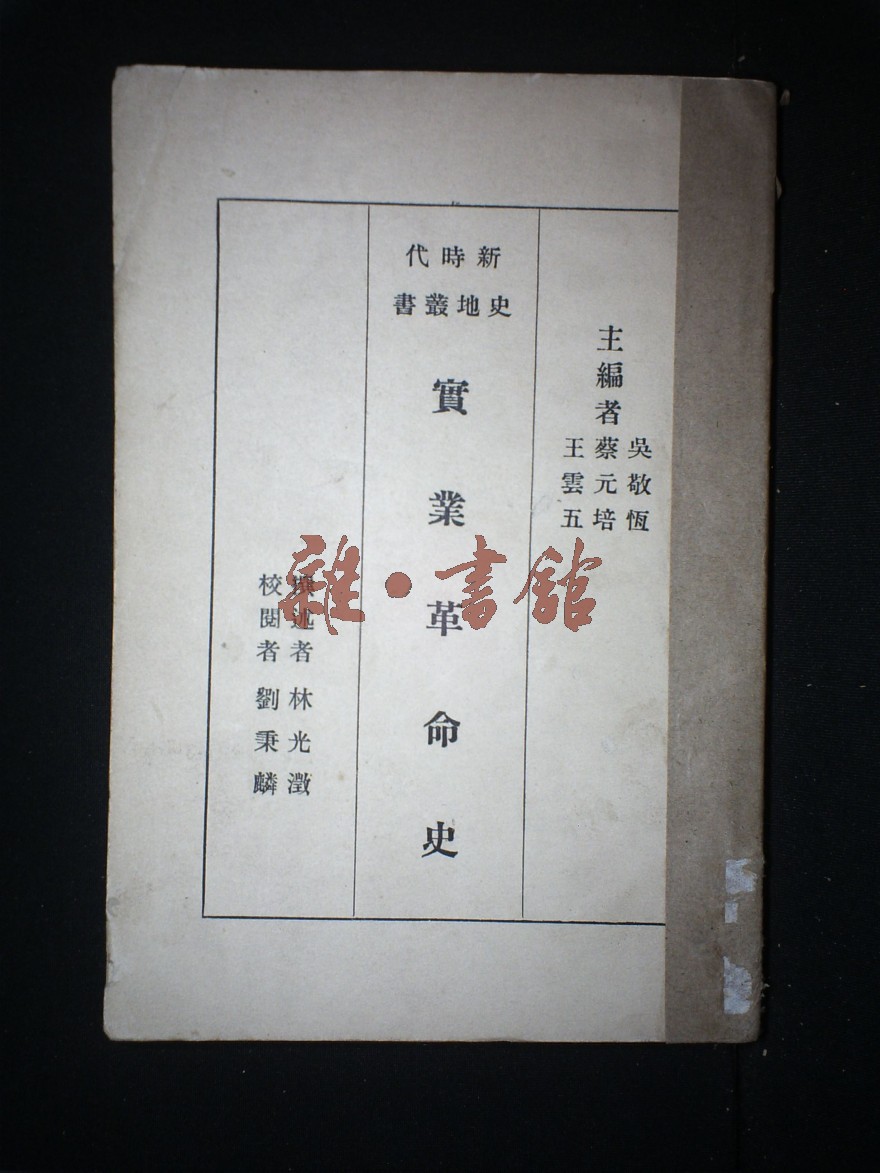 主編者
吳敬恆
蔡元培
王雲五
新時代
史地叢書
實業革命史
撰述者 林光澂
校閱者 劉秉麟
雜·書館